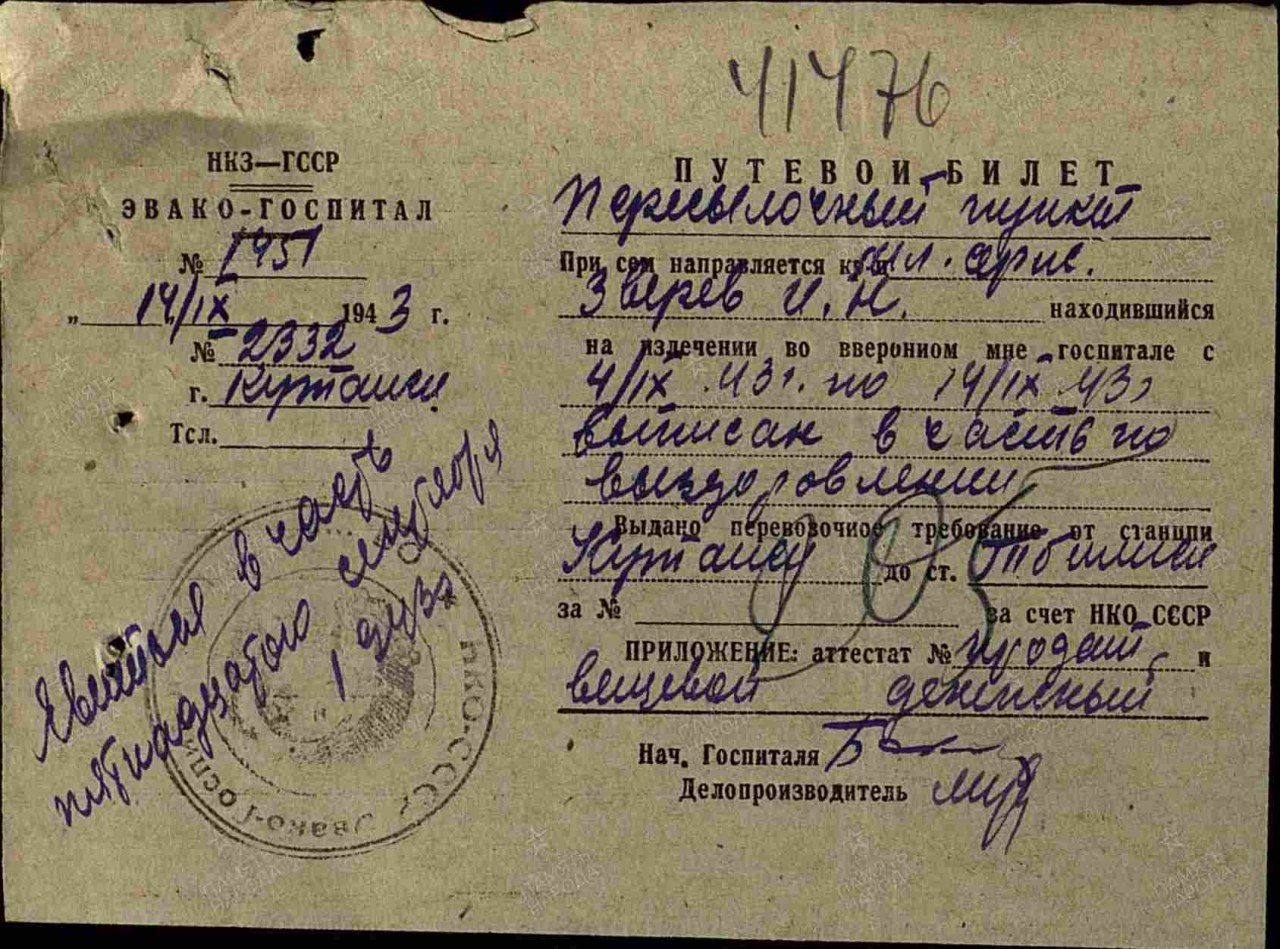 41476
НКЗ—ГССР
ЭВАКО-ГОСПИТАЛ
№ 1951
„ 14/IX 1943 г.
№ 2332
г. Кутаиси
Тсл.
Явиться в часть
пятнадцатого сентября
ПУТЕВОЙ БИЛЕТ
Пересылочный пункт
При сем направляется
Зверев И. Н. находившийся
на излечении во ввероннom мне госпитале с
4/IX 43 г. по 14/IX 43 г
выписан в часть по
выздоровлении
Выдано перевозочное требование от станции
Кутаиси до ст. Тбилиси
за № за счет НКО СССР
ПРИЛОЖЕНИЕ: аттестат № продат. и
вещевой денежный
Нач. Госпиталя
Делопроизводитель
НКО-СССР Эвако-Госпи